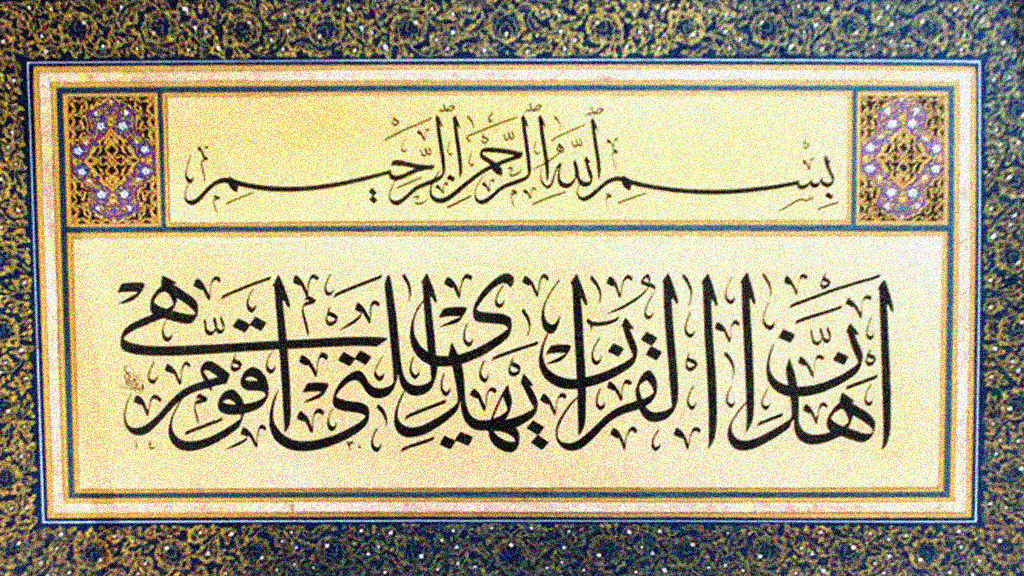 بِسْمِ ٱللَّهِ ٱلرَّحْمٰنِ ٱلرَّحِيمِ
إِنَّ هٰذَا ٱلْقُرْآنَ يَهْدِى لِلَّتِى هِىَ أَقْوَمُ